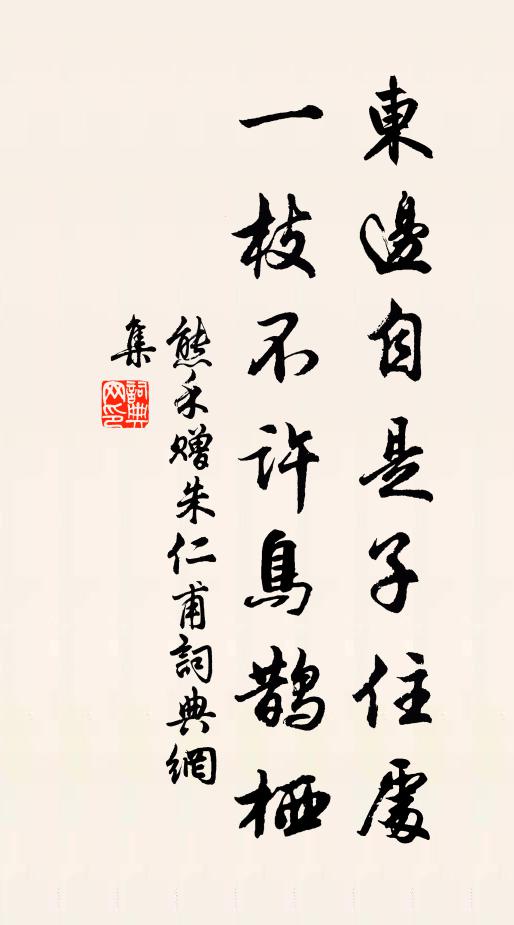 東邊自是子住處
一枝不許烏鵲栖
熊禾贈朱仁甫詞典網
集
詞典網印